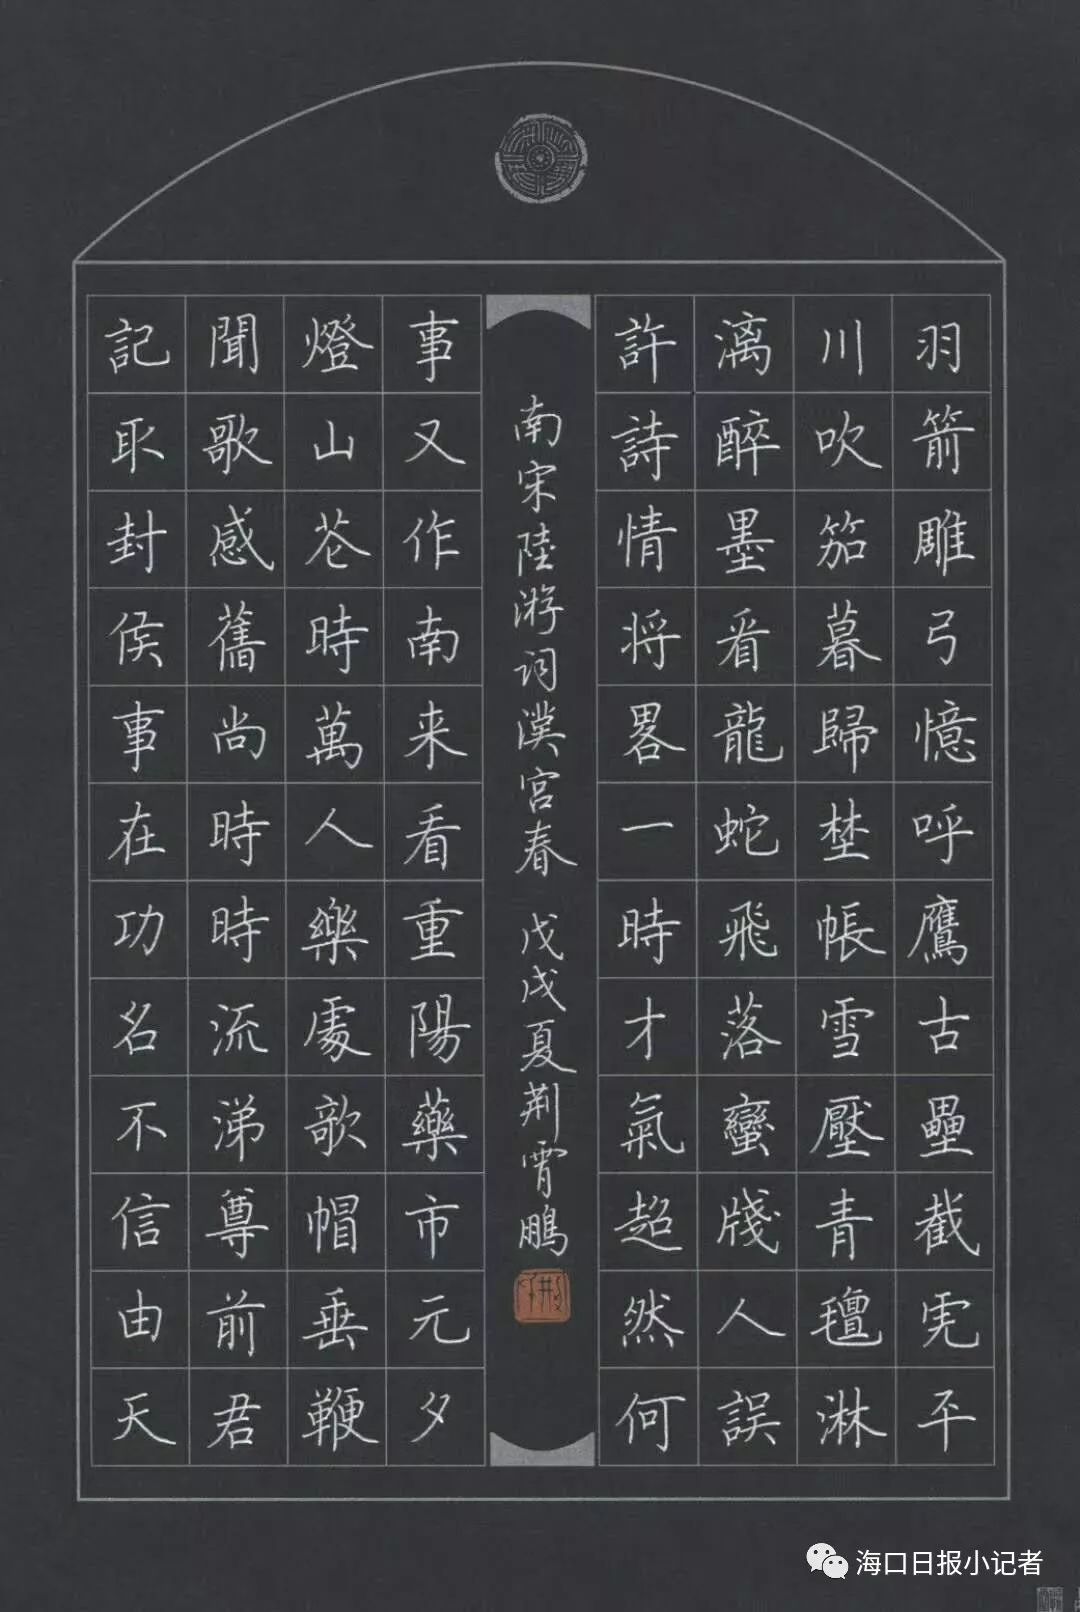 羽箭雕弓憶呼鷹古壘截虎平
川吹笳暮歸埜帳雪壓青氊淋
漓醉墨看龍蛇飛落蠻牋人誤
許詩情将畧一時才氣超然何
南宋陸游词漢宫春 戊戌夏荆霄鵬
事又作南来看重陽藥市元夕
燈山花時萬人樂處歌帽垂鞭
聞歌感舊尚時時流涕尊前君
記取封侯事在功名不信由天
海口日报小记者